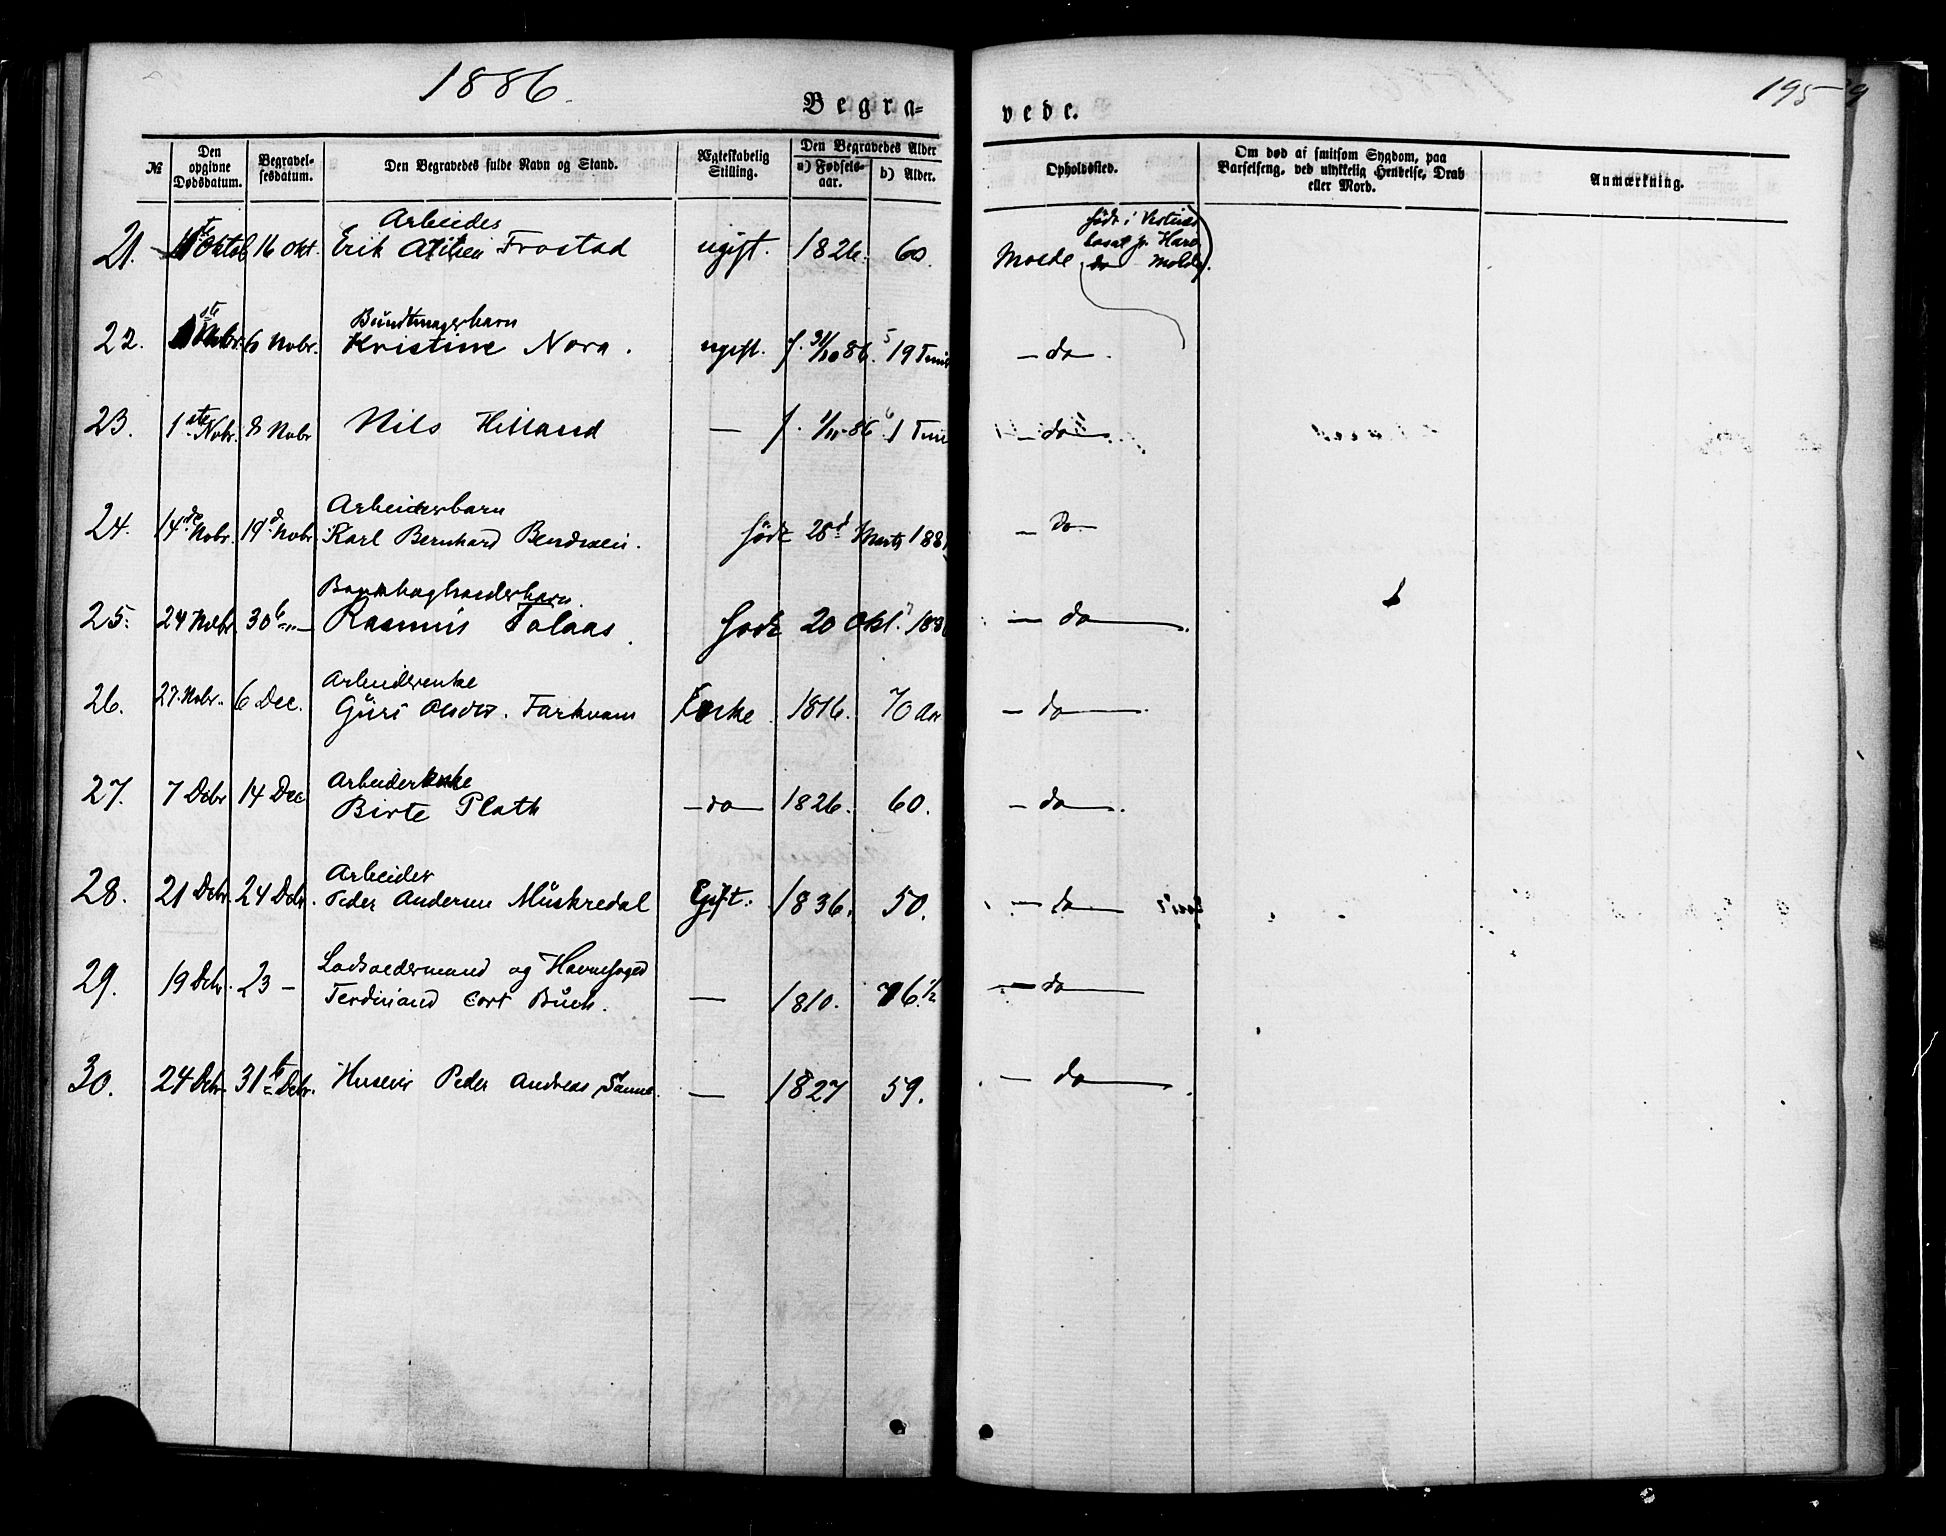 1886.
195
9
Begra=
vede.
№
Den opgivne Dødsdatum.
Begravel-sesdatum.
Den Begravedes fulde Navn og Stand.
Ægteskabelig Stilling.
Den Begravedes Alder
a) Fødsels-aar.
b) Alder.
Opholdssted.
Om død af smitsom Sygdom, paa Barselseng, ved ulykkelig Hendelse, Drab eller Mord.
Anmærkning.
Arbeider
21. Oktob 16 Okt. Erik Frostad ugift. 1826. 60. Molde
født i
Molde).
Bundtmagerbarn
22. Nobr. 6 Nobr. Kristine Nora. ugift. f. 31/10 86. 19 Timer — do —.
23. 1ste Nobr. 8 Nobr Nils Hilland — f. 1/11 86 1 Time — do —
Arbeiderbarn
24. 14de Nobr. 19d Nobr. Karl Bernhard Bendixen. født 28d Marts — Do —
25. 24 Nobr 30 — Rasmus Talaas. født 20 Okt. — do —
Arbeiderenke
26. 27. Nobr. 6 Dec. Guri Farkvam Enke 1816. 70 Aar — do —
Arbeiderenke
27. 7 Debr 14 Dec Birte Plath — do — 1826. 60. — do —
Arbeider
28. 21 Debr. 24 Debr. Peder Andersen Muskredal Gift. 1836. 50. — do —
Lodsoldermand og Havnefoged
29. 19 Debr. 23 — Ferdinand Cort Buch. — 1810. 76 1/2 — do —
30. 24 Debr. 31te Debr. Huseier Peder Andreas Sanne. — 1827 59. — do —